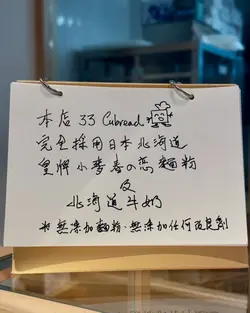 本店 33 Cubread
完全採用日本北海道
皇牌小麥春の恋麵粉
及
北海道牛奶
和無添加麵粉·無添加任何改良劑